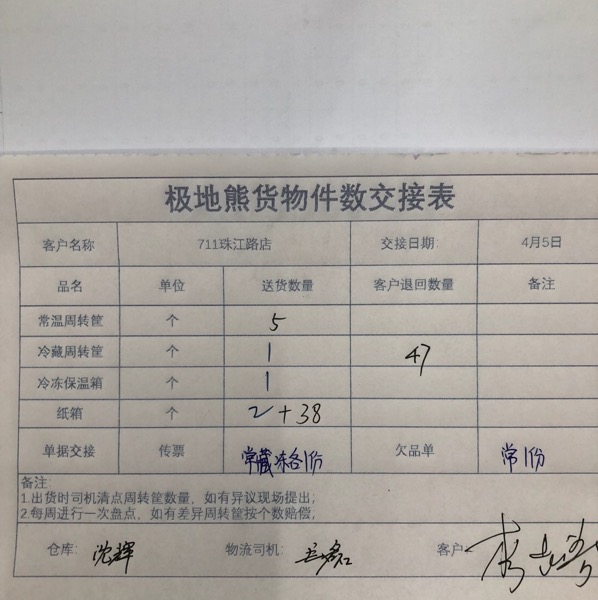 极地熊货物件数交接表
客户名称 711珠江路店 交接日期: 4月5日
品名 单位 送货数量 客户退回数量 备注
常温周转筐 个 5
冷藏周转筐 个 1 47
冷冻保温箱 个 1
纸箱 个 2+38
单据交接 传票 常藏冻各1份 欠品单 常1份
备注:
1.出货时司机清点周转筐数量，如有异议现场提出;
2.每周进行一次盘点，如有差异周转筐按个数赔偿;
仓库: 沈辉 物流司机: 王磊 客户: